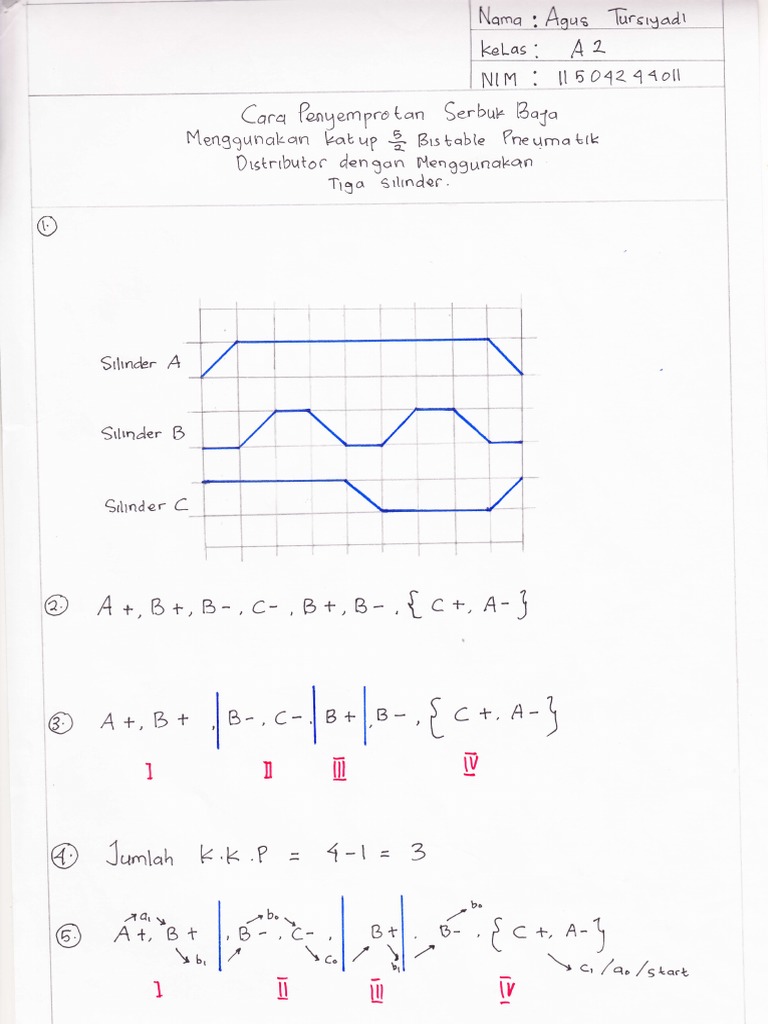 Nama : Agus Tursiyadi
Kelas : A2
NIM : 11504244011
Cara Penyemprotan Serbuk Baja
Menggunakan Katup 5/2 Bistable Pneumatik
Distributor dengan Menggunakan
Tiga Silinder.
1.
Silinder A
Silinder B
Silinder C
2. A+, B+, B-, C-, B+, B-, { C+, A- }
3. A+, B+, | B-, C-, | B+ | , B-, { C+, A- }
I II III IV
4. Jumlah K.K.P = 4-1 = 3
a1 b0 b0
5. A+, B+ | , B-, C-, | B+ | . B-, { C+, A- }
b1 c0 b1 c1/a0/start
I II III IV